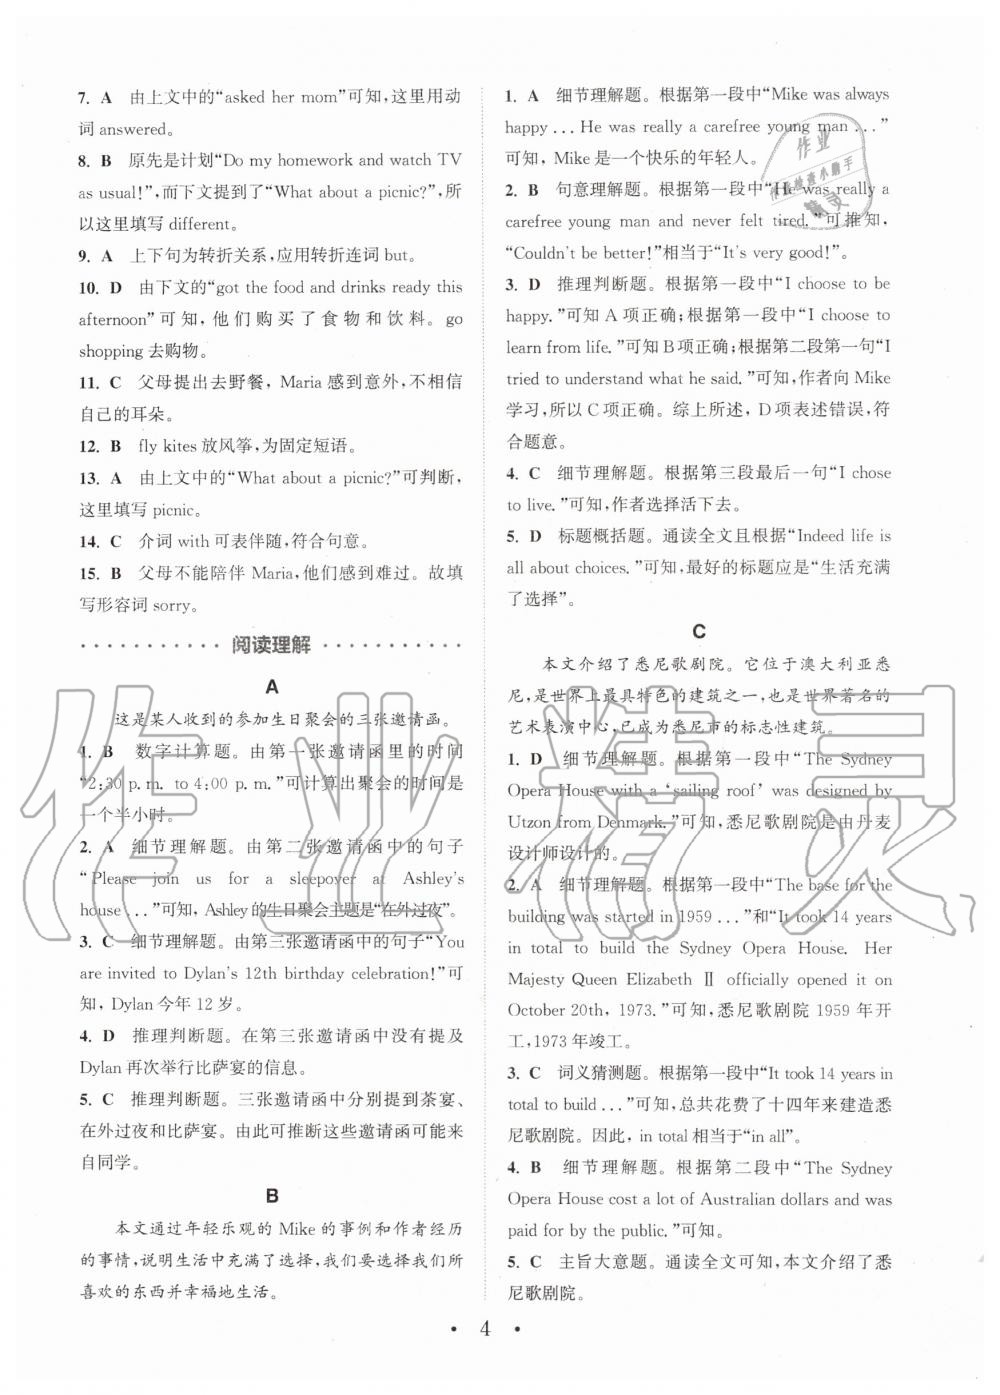 7. A 由上文中的“asked her mom”可知,这里用动
词 answered。
8. B 原先是计划“Do my homework and watch TV
as usual!”,而下文提到了“What about a picnic?”,所
以这里填写 different。
9. A 上下句为转折关系,应用转折连词 but。
10. D 由下文的“got the food and drinks ready this
afternoon”可知,他们购买了食物和饮料。go
shopping 去购物。
11. C 父母提出去野餐, Maria 感到意外,不相信
自己的耳朵。
12. B fly kites 放风筝,为固定短语。
13. A 由上文中的“What about a picnic?”可判断,
这里填写 picnic。
14. C 介词 with 可表伴随,符合句意。
15. B 父母不能陪伴 Maria,他们感到难过。故填
写形容词 sorry。
阅读理解
A
这是某人收到的参加生日聚会的三张邀请函。
1. B 数字计算题。由第一张邀请函里的时间
“2:30 p. m. to 4:00 p. m.”可计算出聚会的时间是
一个半小时。
2. A 细节理解题。由第二张邀请函中的句子
“Please join us for a sleepover at Ashley's
house ...”可知, Ashley的生日聚会主题是“在外过夜”。
3. C 细节理解题。由第三张邀请函中的句子“You
are invited to Dylan's 12th birthday celebration!”可
知, Dylan 今年 12 岁。
4. D 推理判断题。在第三张邀请函中没有提及
Dylan 再次举行比萨宴的信息。
5. C 推理判断题。三张邀请函中分别提到茶宴、
在外过夜和比萨宴。由此可推断这些邀请函可能来
自同学。
B
本文通过年轻乐观的 Mike 的事例和作者经历
的事情,说明生活中充满了选择,我们要选择我们所
喜欢的东西并幸福地生活。
1. A 细节理解题。根据第一段中“Mike was always
happy ... He was really a carefree young man ...”
可知, Mike 是一个快乐的年轻人。
2. B 句意理解题。根据第一段中“He was really a
carefree young man and never felt tired.”可推知,
“Couldn't be better!”相当于“It's very good!”。
3. D 推理判断题。根据第一段中“I choose to be
happy.”可知 A 项正确;根据第一段中“I choose to
learn from life.”可知 B 项正确;根据第二段第一句“I
tried to understand what he said.”可知,作者向 Mike
学习,所以 C 项正确。综上所述, D 项表述错误,符
合题意。
4. C 细节理解题。根据第三段最后一句“I chose
to live.”可知,作者选择活下去。
5. D 标题概括题。通读全文且根据“Indeed life is
all about choices.”可知,最好的标题应是“生活充满
了选择”。
C
本文介绍了悉尼歌剧院。它位于澳大利亚悉
尼,是世界上最具特色的建筑之一,也是世界著名的
艺术表演中心,已成为悉尼市的标志性建筑。
1. D 细节理解题。根据第一段中“The Sydney
Opera House with a ‘sailing roof’ was designed by
Utzon from Denmark.”可知,悉尼歌剧院是由丹麦
设计师设计的。
2. A 细节理解题。根据第一段中“The base for the
building was started in 1959 ...”和“It took 14 years
in total to build the Sydney Opera House. Her
Majesty Queen Elizabeth Ⅱ officially opened it on
October 20th, 1973.”可知,悉尼歌剧院 1959 年开
工,1973 年竣工。
3. C 词义猜测题。根据第一段中“It took 14 years in
total to build ...”可知,总共花费了十四年来建造悉
尼歌剧院。因此, in total 相当于“in all”。
4. B 细节理解题。根据第二段中“The Sydney
Opera House cost a lot of Australian dollars and was
paid for by the public.”可知。
5. C 主旨大意题。通读全文可知,本文介绍了悉
尼歌剧院。
• 4 •
作业精灵